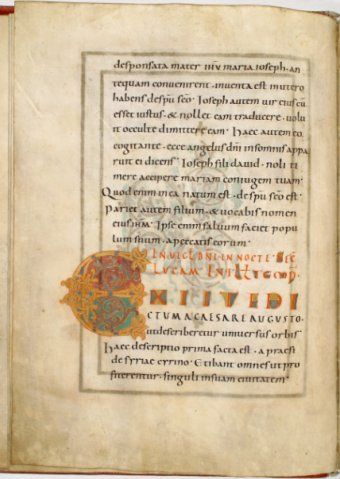 desponsata mater ihu maria ioseph · an
tequam convenirent · inventa est in utero
habens de spu sco · Ioseph autem vir eius cu
esset iustus · & nollet eam traducere · volu
it occulte dimittere eam · Haec autem eo
cogitante · ecce angelus dni in somnis appa
ruit ei dicens · Ioseph fili david · noli ti
mere accipere mariam coniugem tuam ·
Quod enim in ea natum est · de spu sco est ·
Pariet autem filium · & vocabis nomen
eius ihm · Ipse enim salvum faciet popu
lum suum · a peccatis eorum ·
IN NOCTE
LUCAM
EXIIT EDI
CTUM A CAESARE AUGUSTO ·
ut describeretur universus orbis
Haec descriptio prima facta est · a praesi
de syriae cyrino · Et ibant omnes ut pro
fiterentur · singuli in suam civitatem ·